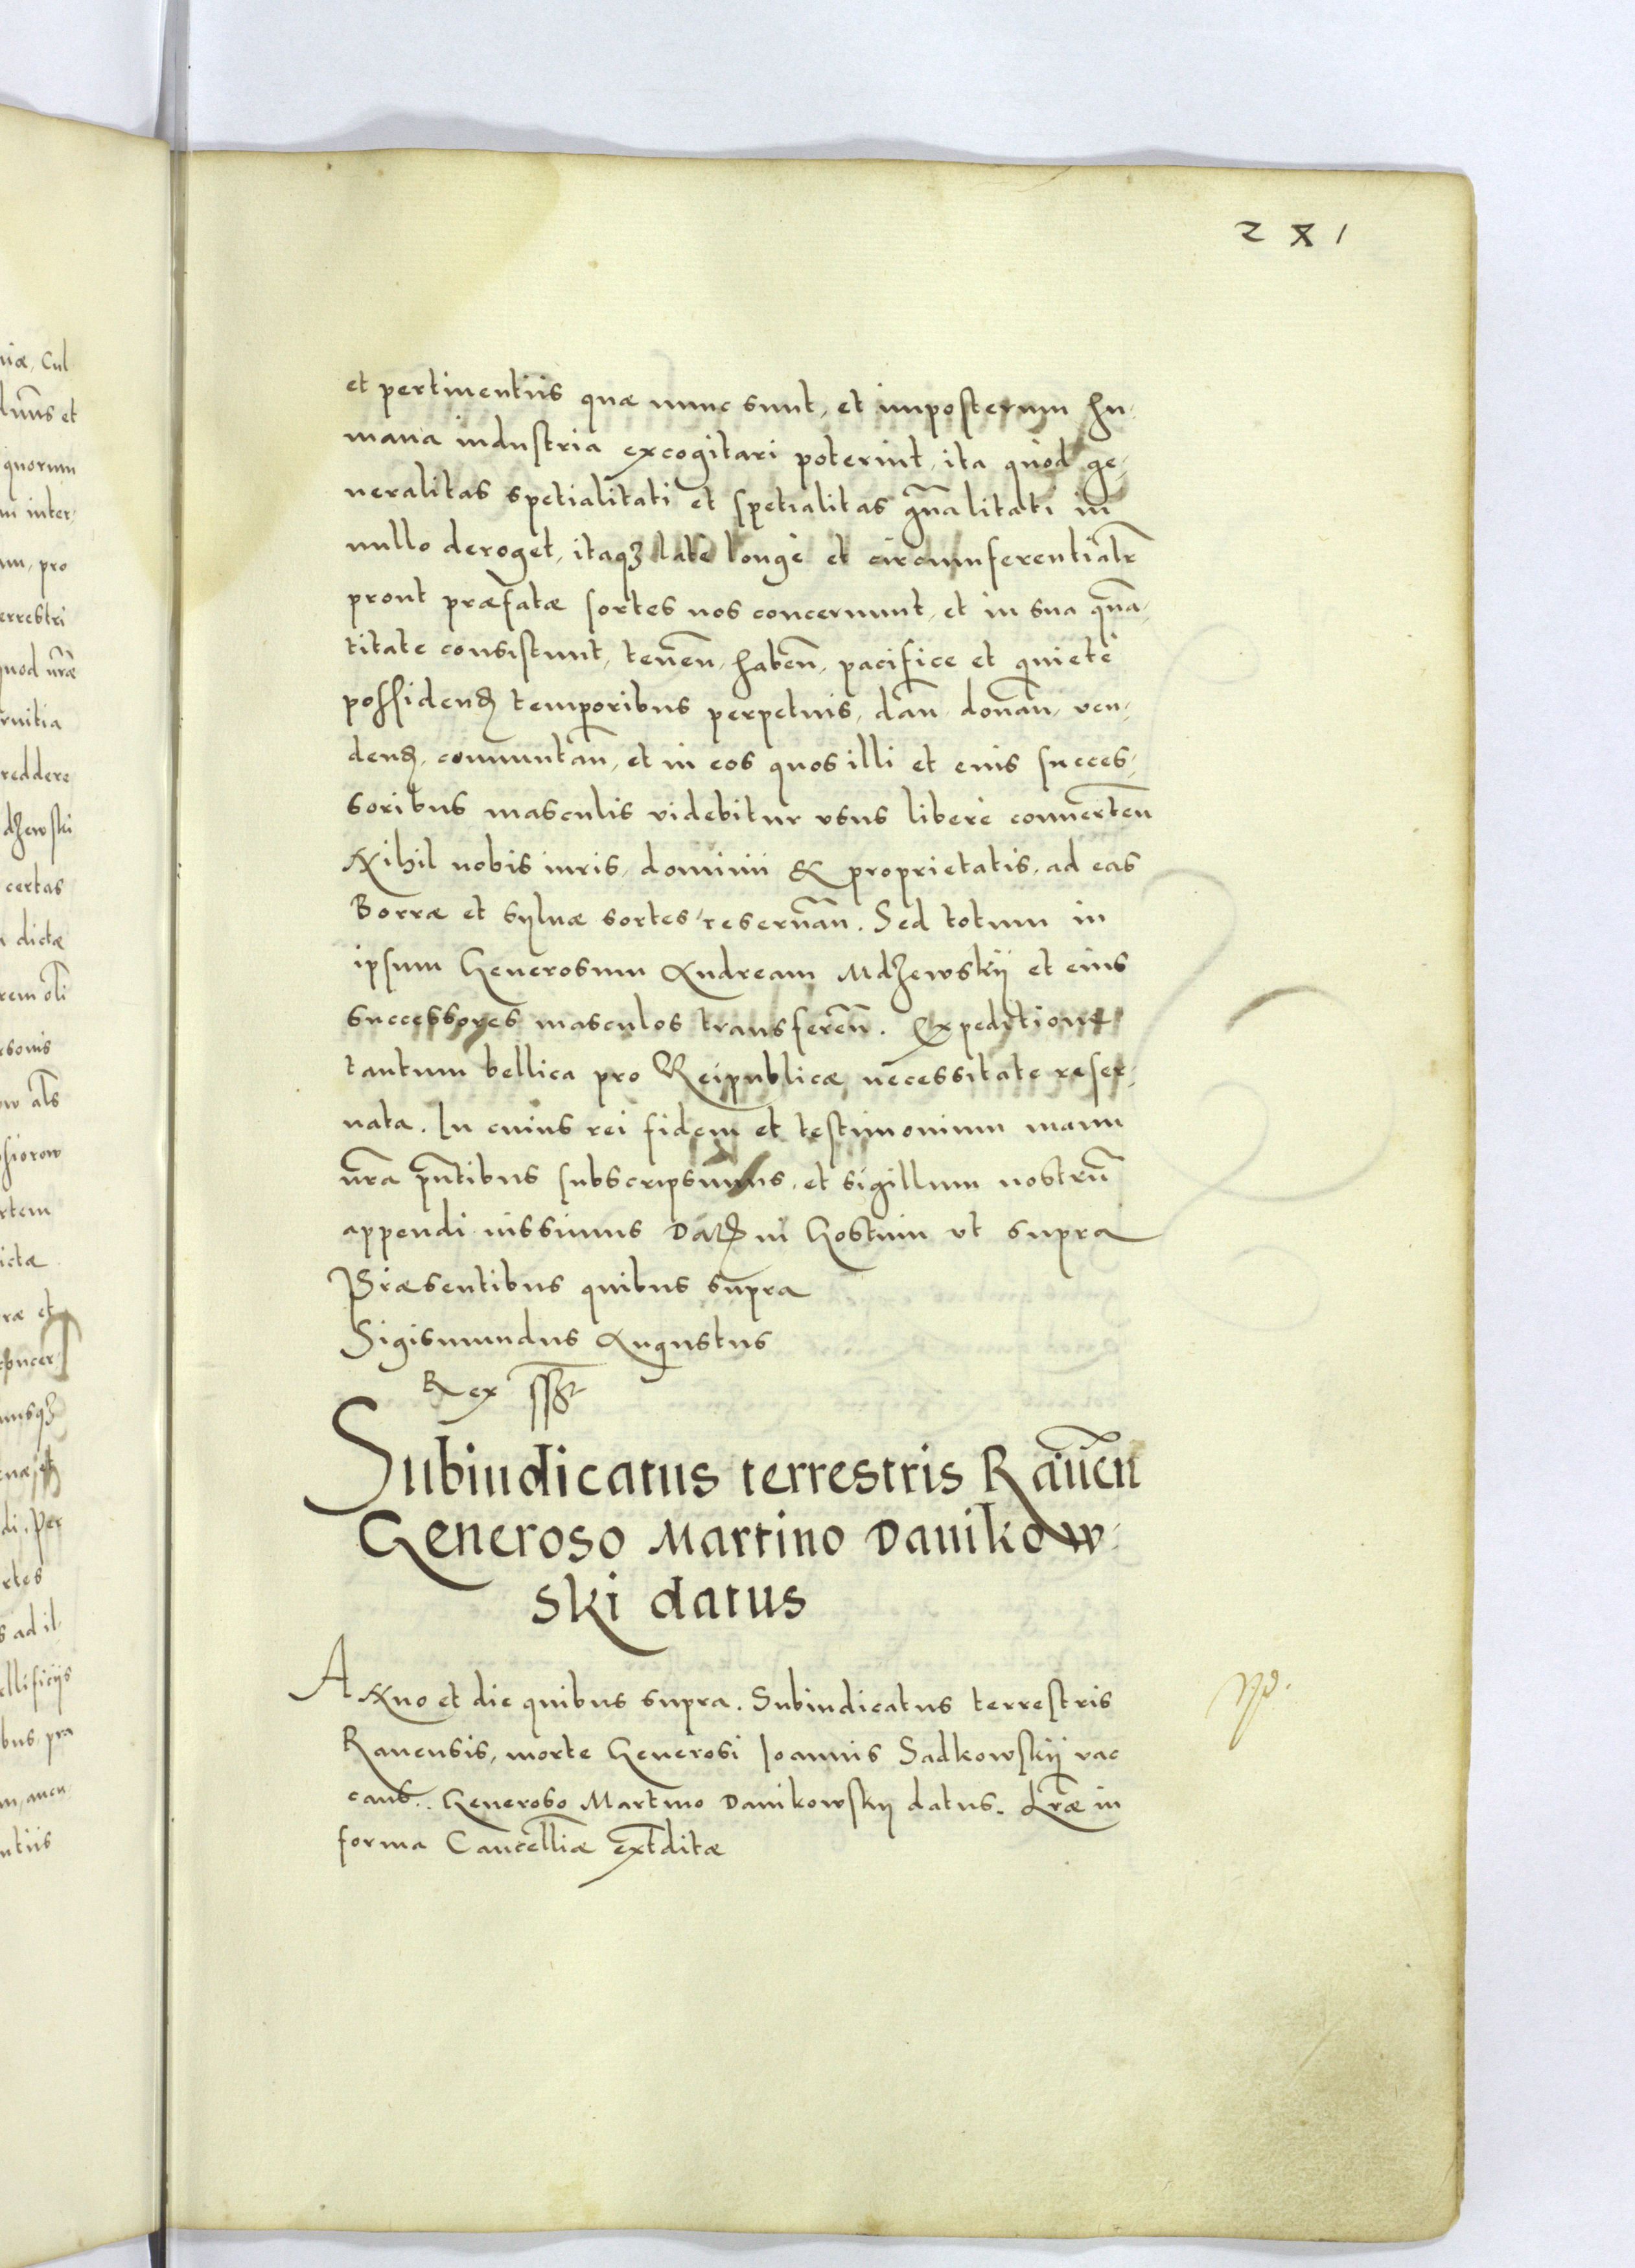 2 X 1
et pertinentiis quæ nunc sunt, et imposterum hu-
mana industria excogitari poterint, ita quod ge-
neralitas spetialitati et spetialitas gñalitati in
nullo deroget, itaqȝ late longè et circumferentialr̄
prout præfatæ sortes nos concernunt, et in sua quã-
titate consistunt, teneñ, habeñ, pacifice et quietè
possidenđ temporibus perpetuis, dañ donañ, ven-
denđ, commutañ, et in eos quos illi et eius succes-
soribus masculis videbitur vsus liberè conuerteñ
Nihil nobis iuris, dominii & proprietatis, ad eas
Borræ et Syluæ sortes reseruañ. Sed totum in
ipsum Generosum Andream Mdzewskij et eius
successores masculos transfereñ. Expeditione
tantum bellica pro Reipublicæ necessitate reser-
uata. In cuius rei fidem et testimonium manu
nr̃a pñtibus subscripsimus, et sigillum nostrũ
appendi iussimus Datꝭ in Gostinin vt supra
Præsentibus quibus supra
Sigismundus Augustus
Rex sst
Subiudicatus terrestris Raueñ
Generoso Martino Danikow-
ski datus
Anno et die quibus supra. Subiudicatus terrestris
Rauensis, morte Generosi Joannis Sadkowskij vac
cans. Generoso Martino Danikowskij datus. Lr̃æ in
forma Cancellr̃iæ extraditæ